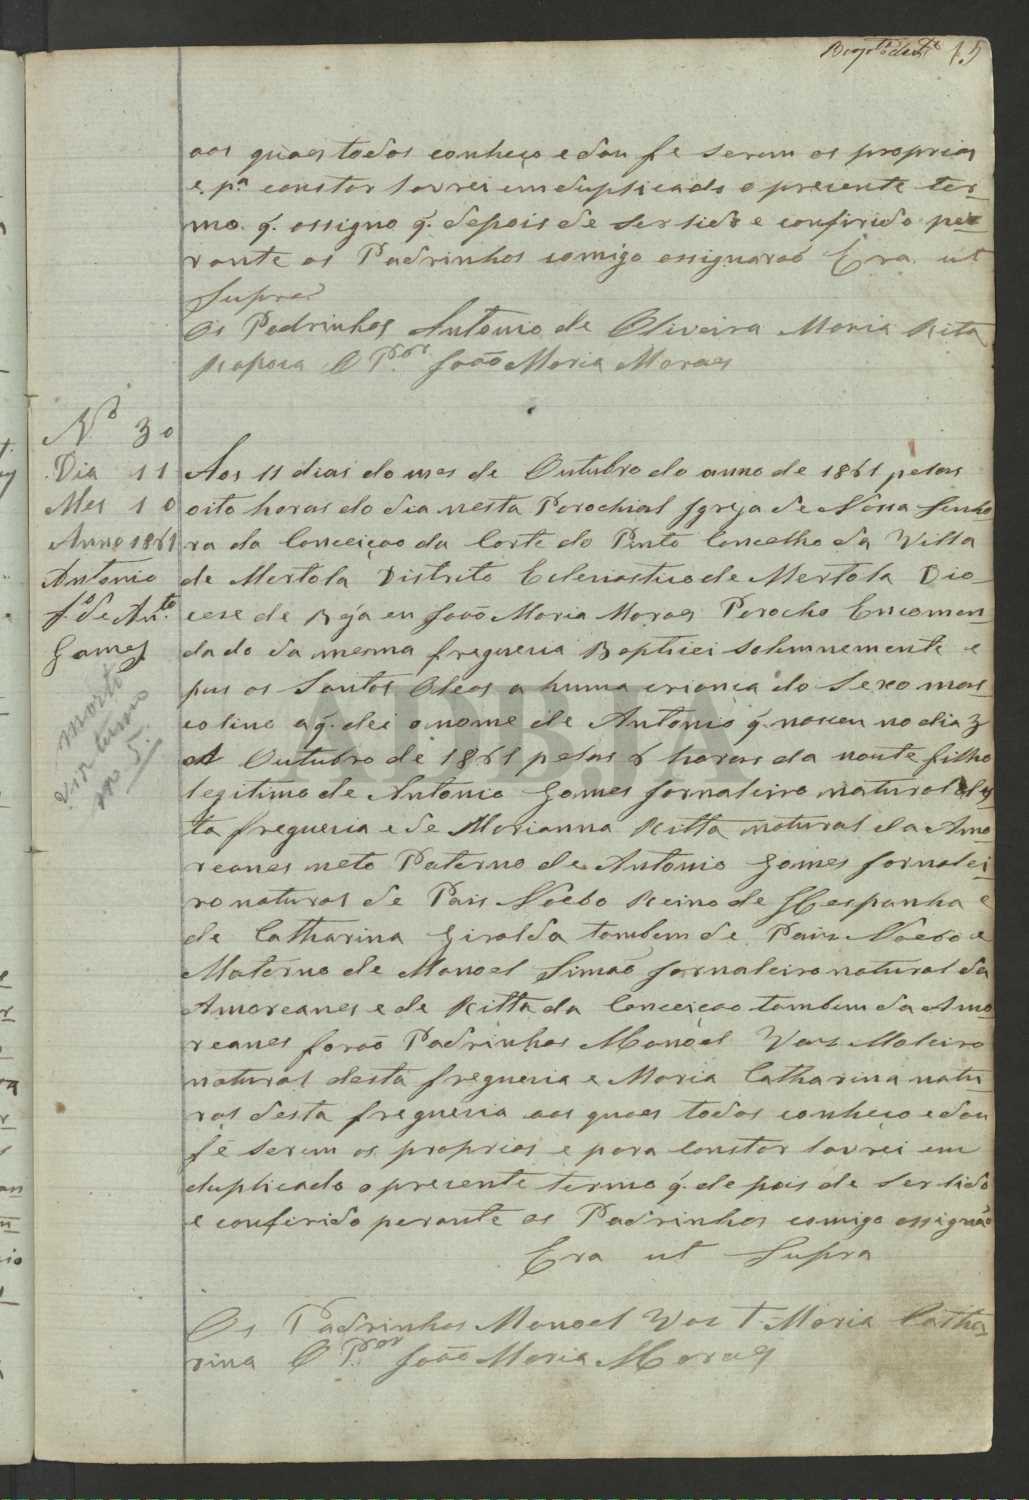 15
aos quaes todos conheço e dou fe serem os proprios
e pª constar lavrei em duplicado o prezente ter-
mo q̃. assigno q̃. depois de ser lido e confirido pe-
rante os Padrinhos comigo assignaraõ Era ut
Supra
Os Padrinhos Antonio de Oliveira Maria Rita
Rapoza O P.ror João Maria Moraes
Nº 30
Dia 11
Mes 10
Anno 1861
Antonio
fº de Antº
Gomes
morto
vid termo
no 5.
Aos 11 dias do mes de Outubro do anno de 1861 pelas
oito horas do dia nesta Parochial Igreja de Nossa Senho
ra da Conceiçao da Corte do Pinto Concelho da Villa
de Mertola Distrito Eclesiastico de Mertola Dio-
cese de Beja eu João Maria Moraes Parocho Encomen-
dado da mesma freguezia Baptizei solemnemente e
pus os Santos Oleos a huma criança do sexo mas-
colino a q̃. dei o nome de Antonio q̃. nasceu no dia 3
d Outubro de 1861 pelas 6 horas da noute filho
legitimo de Antonio Gomes Jornaleiro natural des
ta freguezia e de Marianna Ritta natural da Amo
reanes neto Paterno de Antonio Gomes Jornalei-
ro natural de Pais Noebo Reino de Hespanha e
de Catharina Giralda tambem de Pais Noebo e
Materno de Manoel Simão Jornaleiro natural da
Amoreanes e de Ritta da Conceiçao tambem da Amo
reanes foraõ Padrinhos Manoel Vas Moleiro
natural desta freguezia e Maria Catharina natu-
ral desta freguezia aos quaes todos conheço e dou
fé serem os proprios e para constar lavrei em
duplicado o prezente termo q̃. depois de ser lido
e conferido perante os Padrinhos comigo assignão
Era ut Supra
Os Padrinhos Manoel Vas + Maria Catha
rina O P.ror João Maria Moraes
ADBJA